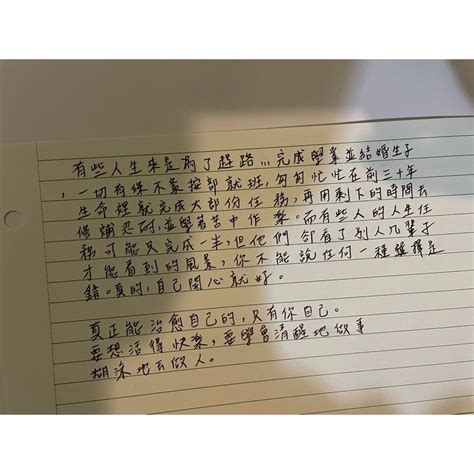 有些人生來是為了趕路...完成學業並結婚生子
，一切有條不紊按部就班，匆匆忙忙在前三十年
生命裡就完成大部份任務，再用剩下的時間去
修補忍耐，並學著苦中作樂。而有些人的人生任
務可能只完成一半，但他們卻看了別人几輩子
才能看到的風景，你不能說任何一種選擇是
錯。真的，自己開心就好。
真正能治愈自己的，只有你自己。
要想活得快樂，要學會清醒地做事
糊涂地去做人。